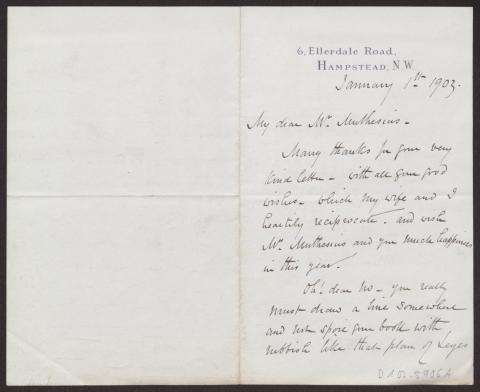 6, Ellerdale Road,
HAMPSTEAD, N.W.
January 1st 1903.
My dear Mr. Muthesius –
Many thanks for your very
kind letter – with all your good
wishes – which my wife and I
heartily reciprocate – and wish
Mrs. Muthesius and you much happiness
in this year.
Oh! dear no – you really
must draw a line somewhere
and not spoil your book with
rubbish like that plan of Leyes